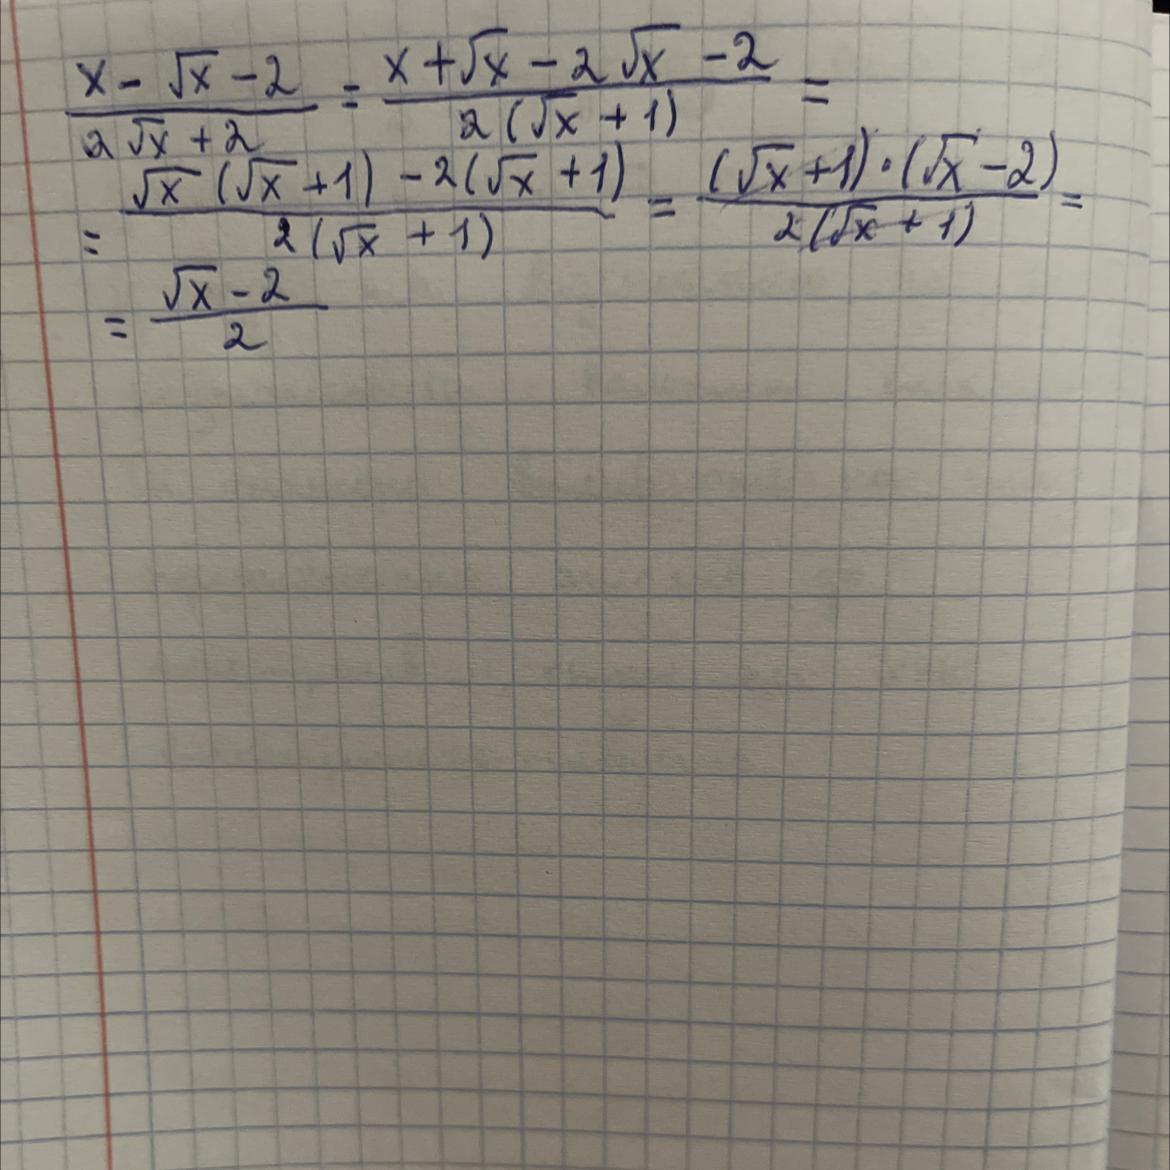 (x - √x - 2)/(2√x + 2) = (x + √x - 2√x - 2)/(2(√x + 1)) =
= (√x (√x + 1) - 2(√x + 1))/(2(√x + 1)) = ((√x + 1)·(√x - 2))/(2(√x + 1)) =
= (√x - 2)/2